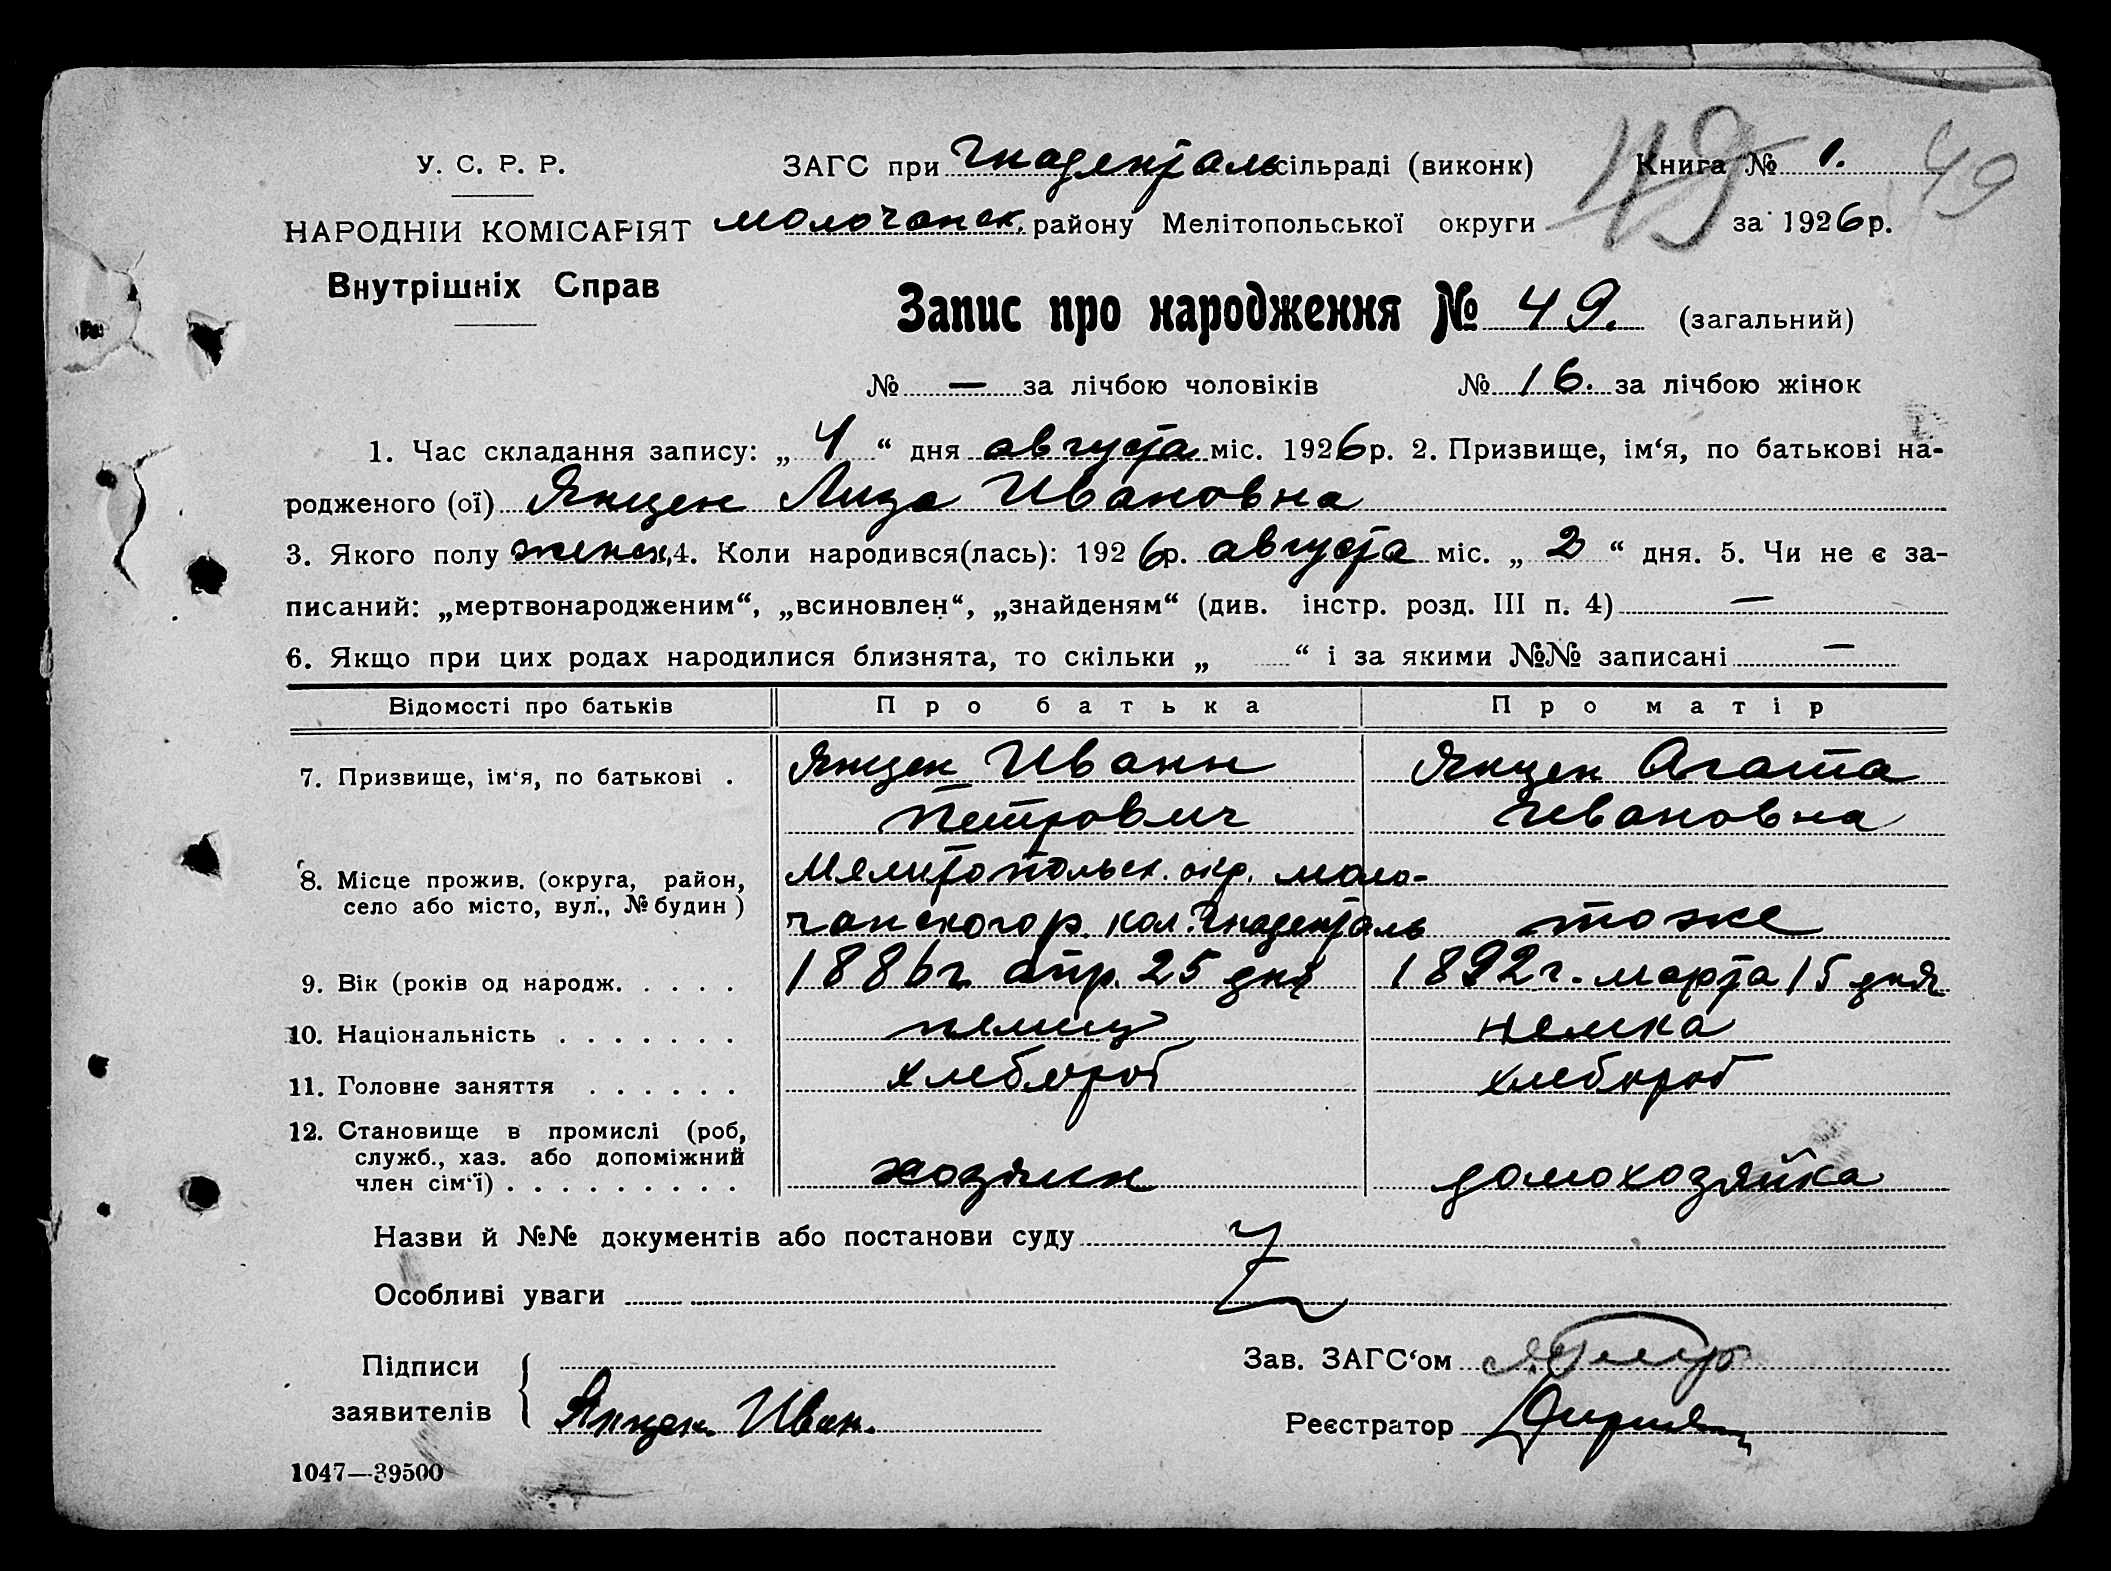 У. С. Р. Р.
НАРОДНІЙ КОМІСАРІЯТ
Внутрішніх Справ
ЗАГС при Гнаденталь сільраді (виконк)
Молочанск. району Мелітопольської округи
Книга № 1.
за 1926 р.
49
49
Запис про народження № 49. (загальний)
№ — за лічбою чоловіків № 16. за лічбою жінок
1. Час складання запису: „ 4 “ дня августа міс. 1926 р. 2. Призвище, ім‘я, по батькові на-
родженого (ої) Янцен Лиза Ивановна
3. Якого полу женск. 4. Коли народився(лась): 1926 р. августа міс. „ 2 “ дня. 5. Чи не є за-
писаний: „мертвонародженим“, „всиновлен“, „знайденям“ (див. інстр. розд. III п. 4) —
6. Якщо при цих родах народилися близнята, то скільки „ “ і за якими №№ записані —
Відомості про батьків Про батька Про матір
7. Призвище, ім‘я, по батькові . Янцен Иванн Янцен Агата
Петрович Ивановна
8. Місце прожив. (округа, район, Мелитопольск. окр. моло-
село або місто, вул., № будин) чанского р. кол. Гнаденталь тоже
9. Вік (років од народж. . . . . 1886 г. апр. 25 дня 1892 г. марта 15 дня
10. Національність . . . . . . . немец немка
11. Головне заняття . . . . . . хлебороб хлебороб
12. Становище в промислі (роб,
служб., хаз. або допоміжний
член сім‘ї) . . . . . . . . . хозяин домохозяйка
Назви й №№ документів або постанови суду
Особливі уваги
Підписи
заявителів
Янцен Иван.
Зав. ЗАГС‘ом
Реєстратор
1047—39500